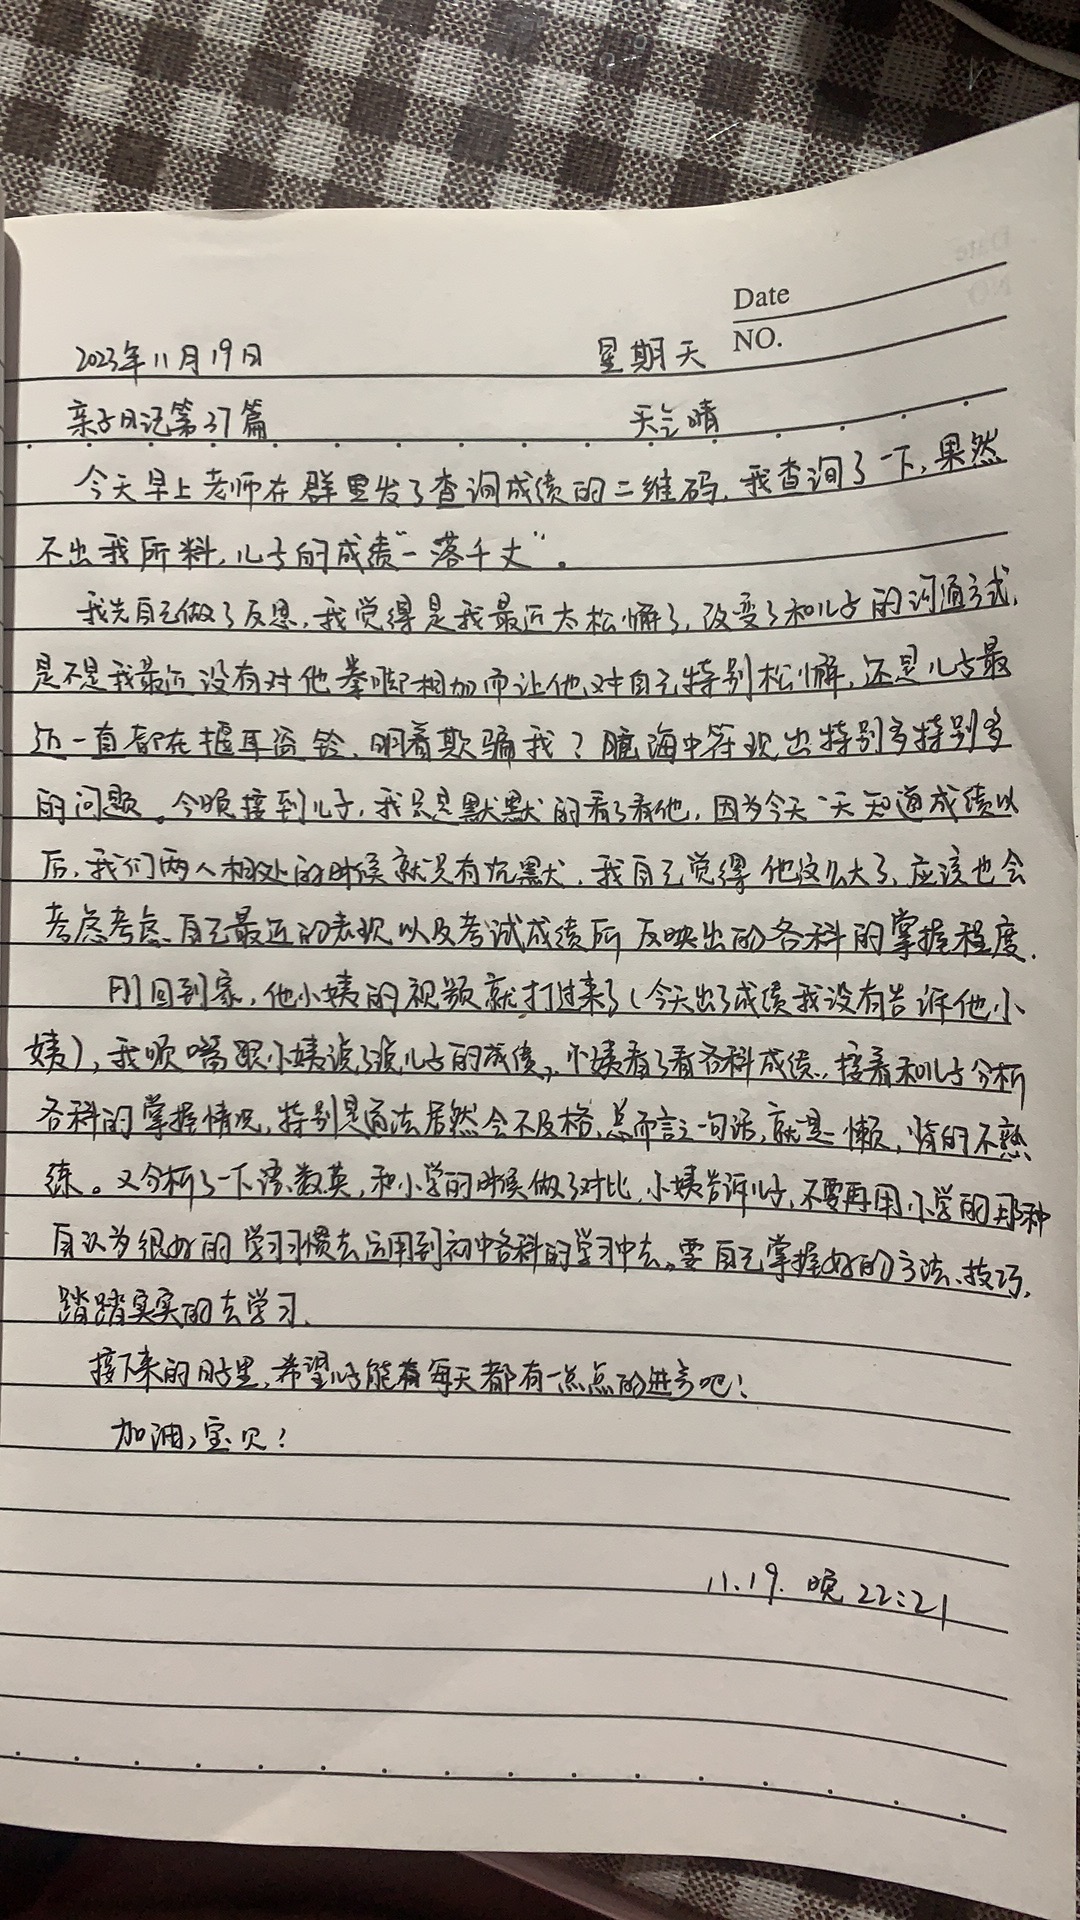 Date
NO.
2023年11月19日 星期天
亲子日记第37篇 天气晴
今天早上老师在群里发了查询成绩的二维码,我查询了一下,果然
不出我所料,儿子的成绩“一落千丈”。
我先自己做了反思,我觉得是我最近太松懈了,改变了和儿子的沟通方式,
是不是我最近没有对他拳脚相加而让他对自己特别松懈,还是儿子最
近一直都在掩耳盗铃,明着欺骗我?脑海中符现出特别多特别多
的问题。今晚接到儿子,我只是默默的看了看他,因为今天一天知道成绩以
后,我们两人相处的时候就只有沉默,我自己觉得他这么大了,应该也会
考虑考虑自己最近的表现以及考试成绩所反映出的各科的掌握程度.
刚回到家,他小姨的视频就打过来了(今天出了成绩我没有告诉他小
姨),我顺嘴跟小姨说了说儿子的成绩,小姨看了看各科成绩,接着和儿子分析
各科的掌握情况,特别是道法居然会不及格,总而言之一句话,就是懒,背的不熟
练。又分析了一下语、数、英,和小学的时候做了对比,小姨告诉儿子,不要再用小学的那种
自认为很好的学习习惯去运用到初中各科的学习中去,要自己掌握好的方法、技巧,
踏踏实实的去学习.
接下来的日子里,希望儿子能有每天都有一点点的进步吧!
加油,宝贝!
11.19.晚22:21